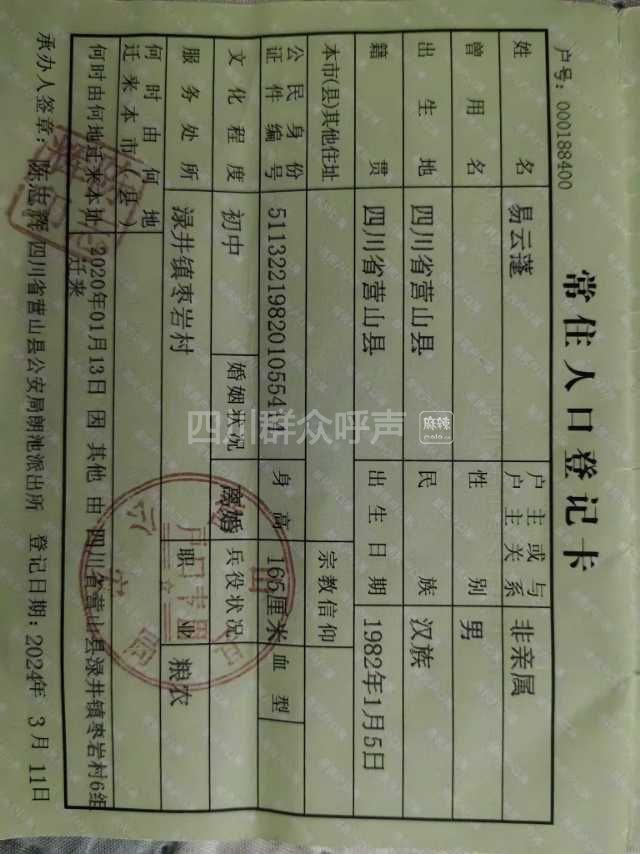 常住人口登记卡
户号：000188400
姓名 易云蓬 户主或与户主关系 非亲属
曾用名 性别 男
出生地 四川省营山县 民族 汉族
籍贯 四川省营山县 出生日期 1982年1月5日
本市(县)其他住址 宗教信仰
公民身份证件编号 身高 165厘米 血型
文化程度 初中 婚姻状况 离婚 兵役状况
服务处所 渌井镇枣岩村 职业 粮农
何时由何地迁来本市(县)
何时由何地迁来本址 2020年01月13日 因 其他 由 四川省营山县渌井镇枣岩村6组
迁来
承办人签章：陈忠辉 四川省营山县公安局朗池派出所 登记日期：2024年 3月 11日
四川群众呼声
麻辣